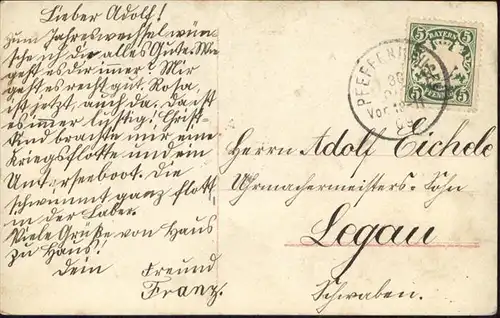 Lieber Adolf!
Zum Jahreswechsel wün-
sche ich dir alles Gute. Wie
geht es dir immer? Mir
geht es recht gut. Rosa,
ist jetzt auch da. Da ist
es immer lustig! Christ-
kind brachte mir eine
Kriegsflotte und ein
Unterseeboot. Die
schwimmt ganz flott
in der Laber.
Viele Grüße von Haus
zu Haus!
Dein Freund
Franz.
BAYERN
5 5
PFENNIG
PFEFFENHAUSEN
30
Vor
09
Herrn Adolf Eichele
Uhrmachermeisters-Sohn
Legau
Schwaben.